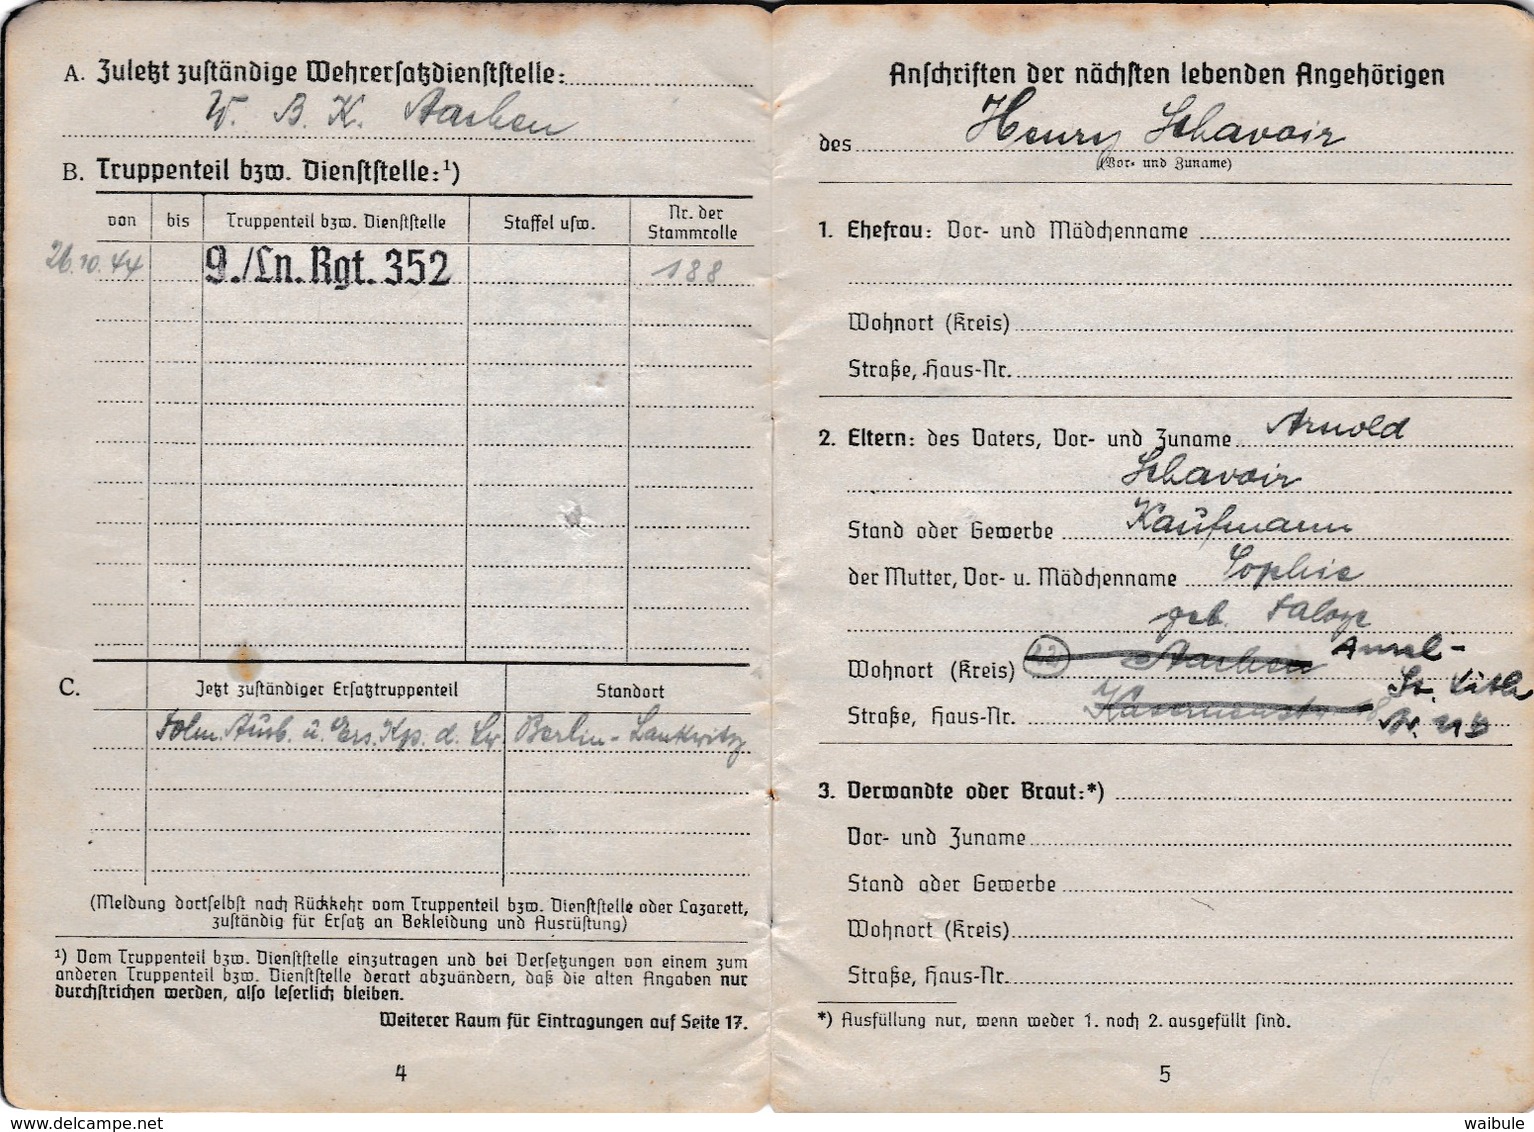 A. Zuletzt zuständige Wehrersatzdienststelle:
W. B. K. Aachen
B. Truppenteil bzw. Dienststelle:¹)
von bis Truppenteil bzw. Dienststelle Staffel usw. Nr. der Stammrolle
26.10.44 9./Ln. Rgt. 352 188
C. Jetzt zuständiger Ersatztruppenteil Standort
Ausb. u. Ers. Kp. d. Lw Berlin-Lankwitz
(Meldung dortselbst nach Rückkehr vom Truppenteil bzw. Dienststelle oder Lazarett,
zuständig für Ersatz an Bekleidung und Ausrüstung)
¹) Vom Truppenteil bzw. Dienststelle einzutragen und bei Versetzungen von einem zum
anderen Truppenteil bzw. Dienststelle derart abzuändern, daß die alten Angaben nur
durchstrichen werden, also leserlich bleiben.
Weiterer Raum für Eintragungen auf Seite 17.
4
Anschriften der nächsten lebenden Angehörigen
des Henry Schavoir
(Vor- und Zuname)
1. Ehefrau: Vor- und Mädchenname
Wohnort (Kreis)
Straße, Haus-Nr.
2. Eltern: des Vaters, Vor- und Zuname Arnold
Schavoir
Stand oder Gewerbe Kaufmann
der Mutter, Vor- u. Mädchenname Sophie
geb.
Wohnort (Kreis) Aachen
Straße, Haus-Nr. Kasernenstr.
3. Verwandte oder Braut:*)
Vor- und Zuname
Stand oder Gewerbe
Wohnort (Kreis)
Straße, Haus-Nr.
*) Ausfüllung nur, wenn weder 1. noch 2. ausgefüllt sind.
5
www.delcampe.net
waibule